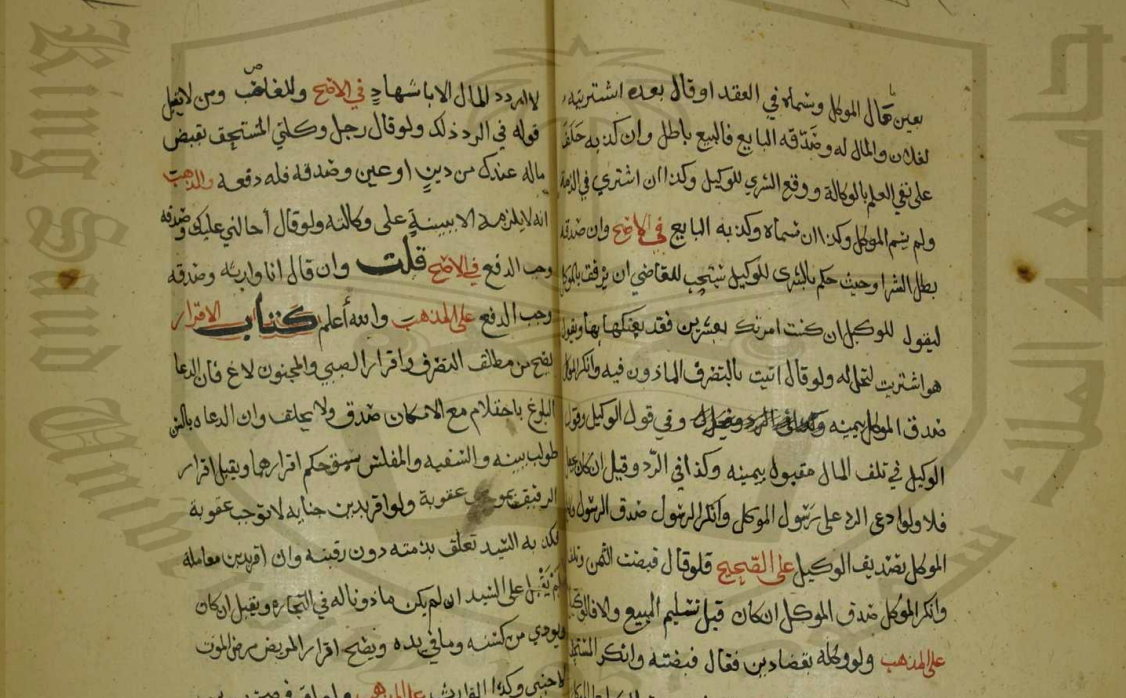 بعين مال الموكل وسماه في العقد او قال بعده اشتريته
لفلان والمال له وصدقه البايع فالبيع باطل وان كذبه حلف
على نفي العلم بالوكالة ووقع الشري للوكيل وكذا ان اشتري في الذمة
ولم يسم الموكل وكذا ان سماه وكذبه البايع في الاصح وان صدقه
بطل الشرا وحيث حكم بالشرى للوكيل يستحب للقاضي ان يرفق بالموكل
ليقول للوكيل ان كنت امرتك بعشرين فقد بعتكها بها ويقول
هو اشتريت لتحل له ولو قال اتيت بالتصرف الماذون فيه وانكر الموكل
صدق الموكل بيمينه وفي قول الوكيل وقول
الوكيل في تلف المال مقبول بيمينه وكذا في الرد وقيل ان كان بجعل
فلا ولو ادعى الرد على رسول الموكل وانكر الرسول صدق الرسول ولا
الموكل بتصديق الوكيل على الصحيح فلو قال قبضت الثمن وتلف
وانكر الموكل صدق الموكل ان كان قبل تسليم المبيع والا فالوكيل
على المذهب ولو وكله بقضا دين فقال قضيته وانكر المستحق
لا اردد المال الا باشهاد في الاصح وللغاصب ومن لا يقبل
قوله في الرد ذلك ولو قال رجل وكلني المستحق بقبض
ماله عندك من دين او عين وصدقه فله دفعه والمذهب
انه لا يلزمه الا ببينة على وكالته ولو قال أحالني عليك وصدقه
وجب الدفع في الاصح قلت وان قال انا وارثه وصدقه
وجب الدفع على المذهب والله أعلم كتاب الاقرار
يصح من مطلق التصرف واقرار الصبي والمجنون لاغ فان ادعا
البلوغ باحتلام مع الامكان صدق ولا يحلف وان ادعاه بالسن
طولب ببينه والسفيه والمفلس سبق حكم اقرارهما ويقبل اقرار
الرقيق بموجب عقوبة ولو اقر بدين جنايه لا توجب عقوبة
فكذبه السيد تعلق بذمته دون رقبته وان اقر بدين معاملة
لم يقبل على السيد ان لم يكن ماذونا له في التجاره ويقبل ان كان
ويودي من كسبه وما في يده ويصح اقرار المريض مرض الموت
لاجنبي وكذا الوارث على المذهب